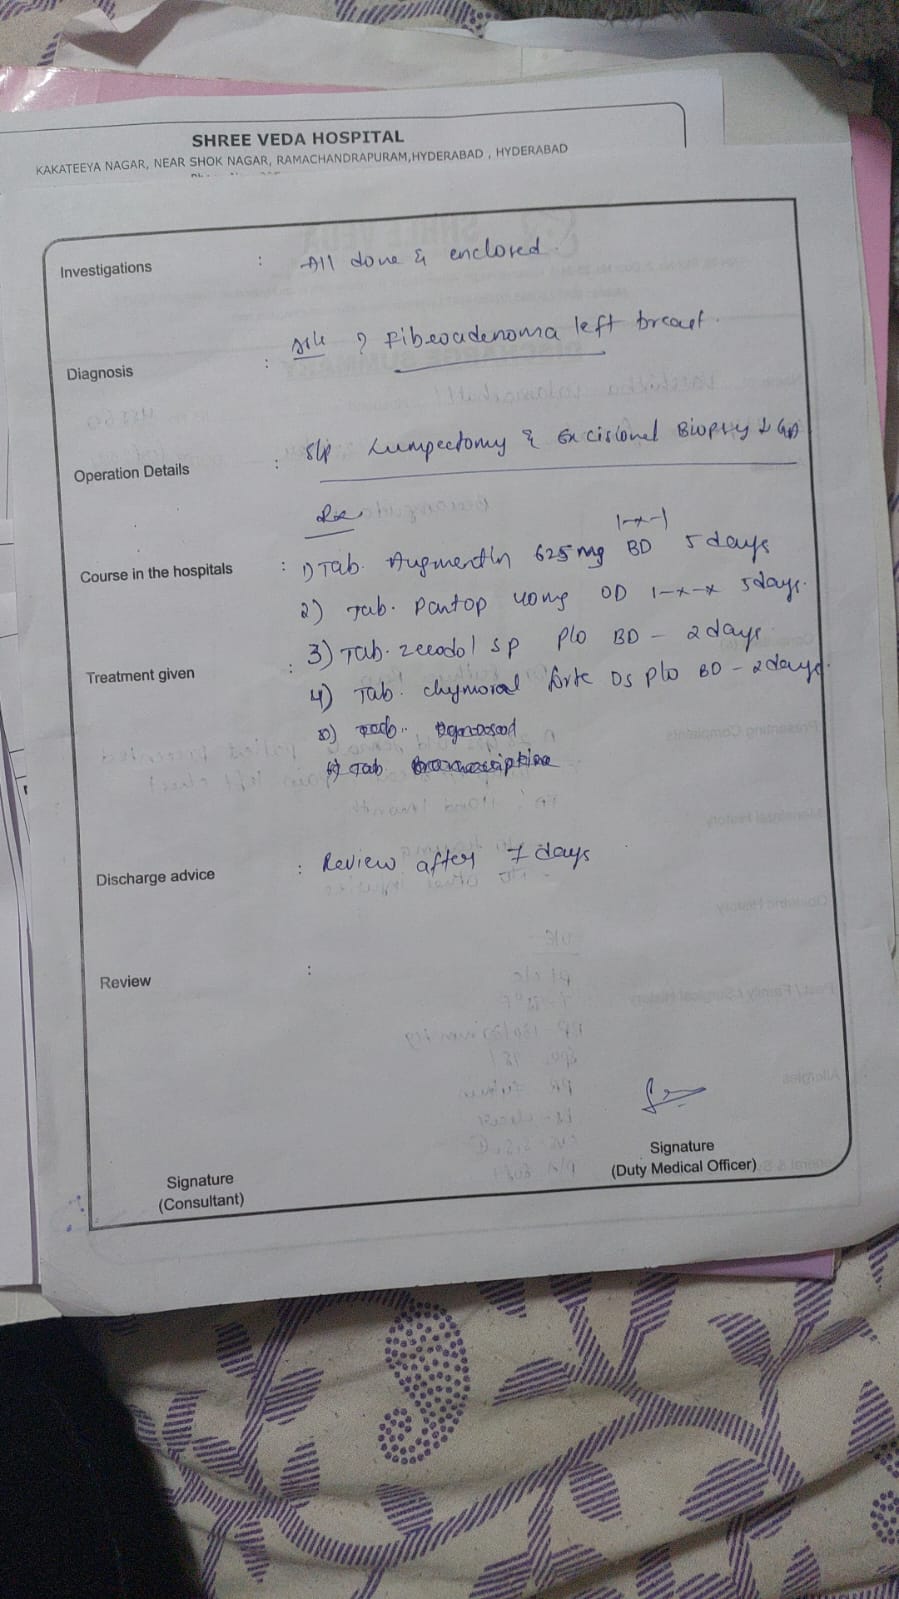 SHREE VEDA HOSPITAL
KAKATEEYA NAGAR, NEAR SHOK NAGAR, RAMACHANDRAPURAM,HYDERABAD , HYDERABAD
Investigations : All done & enclored.
Diagnosis : ? Fibroadenoma left breast.
Operation Details : S/p Lumpectomy & Excisional Biopsy
Rx
1-x-1
Course in the hospitals : 1) Tab. Augmentin 625mg BD 5 days
2) Tab. Pantop 40mg OD 1-x-x 5days.
3) Tab. zerodol sp p/o BD - 2 days
Treatment given : 4) Tab. chymoral forte DS p/o BD - 2 days.
5)
6) Tab
Discharge advice : Review after 7 days
Review :
Signature
(Consultant)
Signature
(Duty Medical Officer)